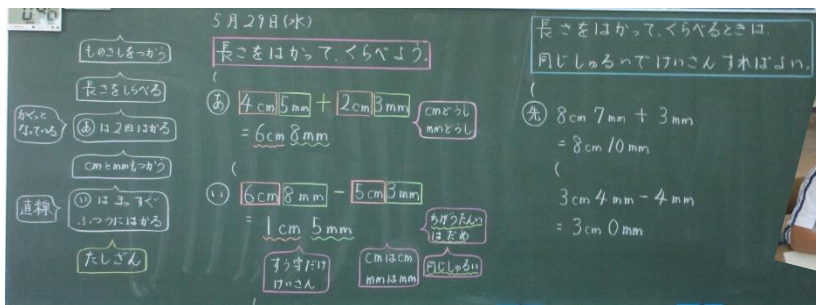 5月29日(水)
長さをはかって、くらべよう。
ものさしをつかう
長さをしらべる
かくっと
なっている
あは2回はかる
cmとmmもつかう
直線
いはまっすぐ
ふつうにはかる
たしざん
あ 4cm5mm + 2cm3mm
= 6cm 8mm
cmどうし
mmどうし
い 6cm8mm - 5cm3mm
= 1cm 5mm
ちがうたんい
はだめ
すう字だけ
けいさん
cmはcm
mmはmm
同じしゅるい
長さをはかって、くらべるときは、
同じしゅるいでけいさんすればよい。
先 8cm 7mm + 3mm
= 8cm 10mm
3cm 4mm - 4mm
= 3cm 0mm